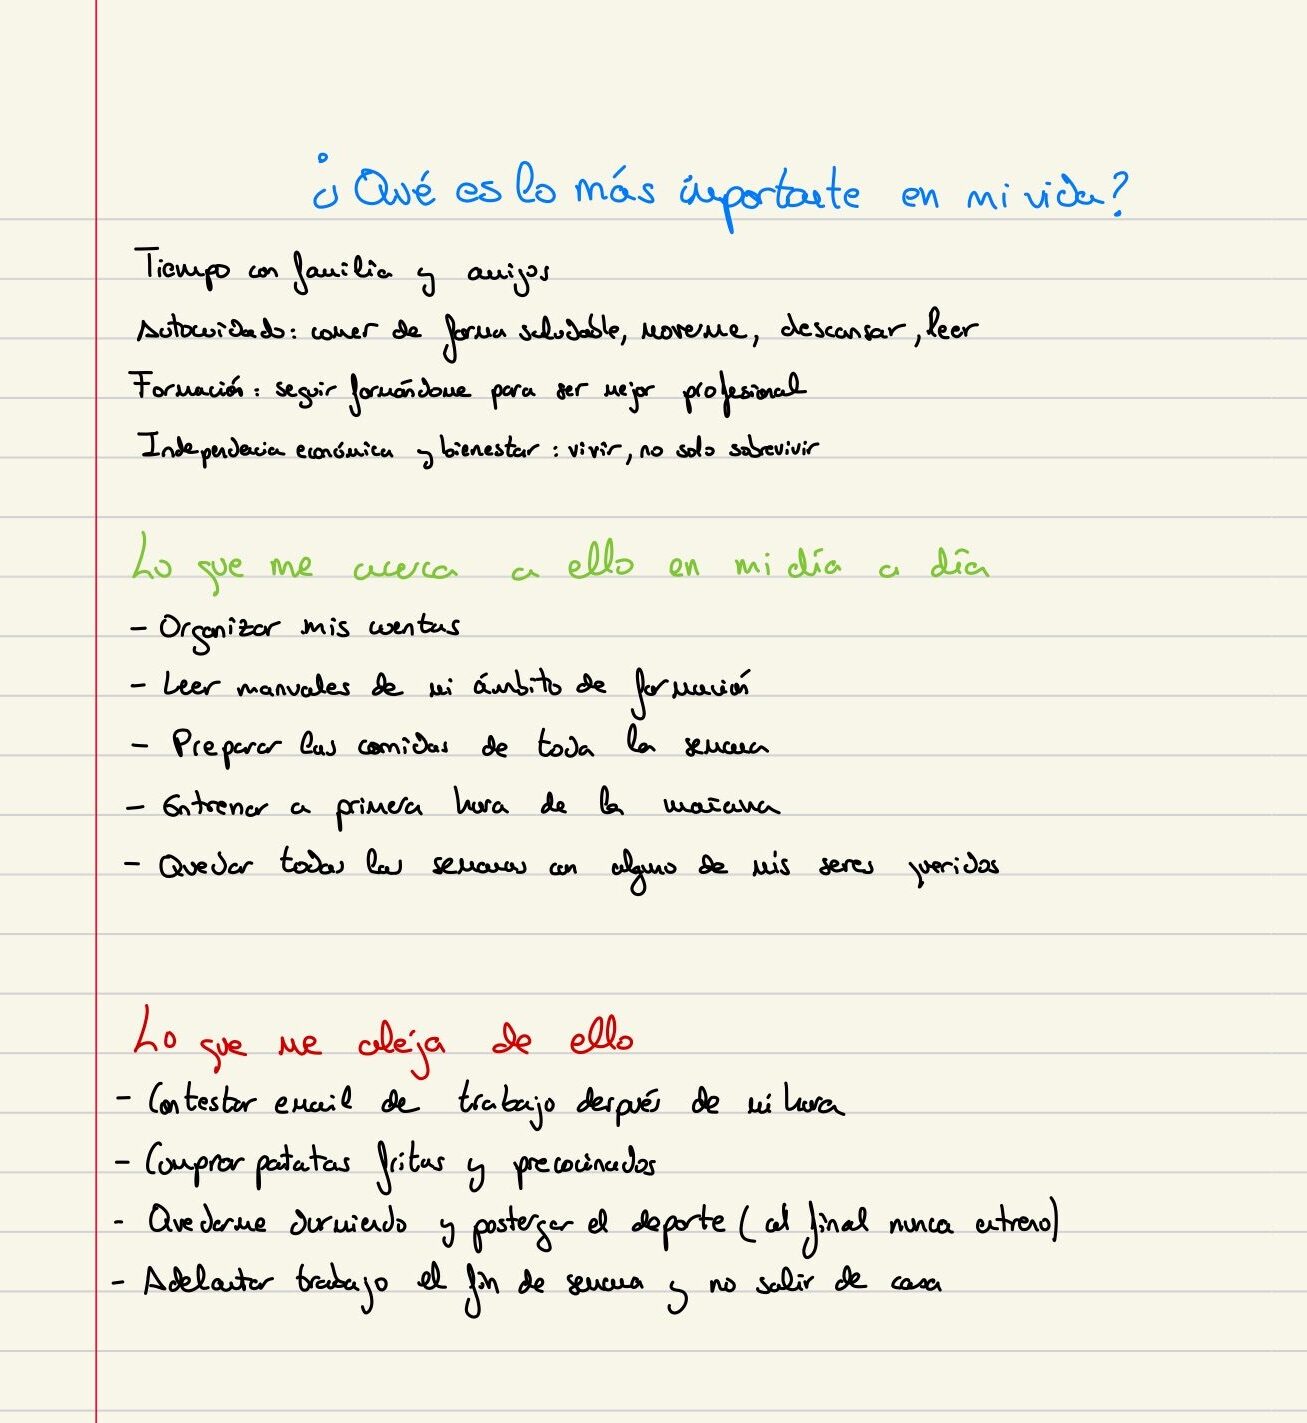 ¿Qué es lo más importante en mi vida?
Tiempo con familia y amigos
Autocuidado: comer de forma saludable, moverme, descansar, leer
Formación: seguir formándome para ser mejor profesional
Independencia económica y bienestar: vivir, no solo sobrevivir
Lo que me acerca a ello en mi día a día
- Organizar mis cuentas
- Leer manuales de mi ámbito de formación
- Preparar las comidas de toda la semana
- Entrenar a primera hora de la mañana
- Quedar todas las semanas con alguno de mis seres queridos
Lo que me aleja de ello
- Contestar email de trabajo después de mi hora
- Comprar patatas fritas y precocinados
- Quedarme durmiendo y postergar el deporte (al final nunca entreno)
- Adelantar trabajo el fin de semana y no salir de casa